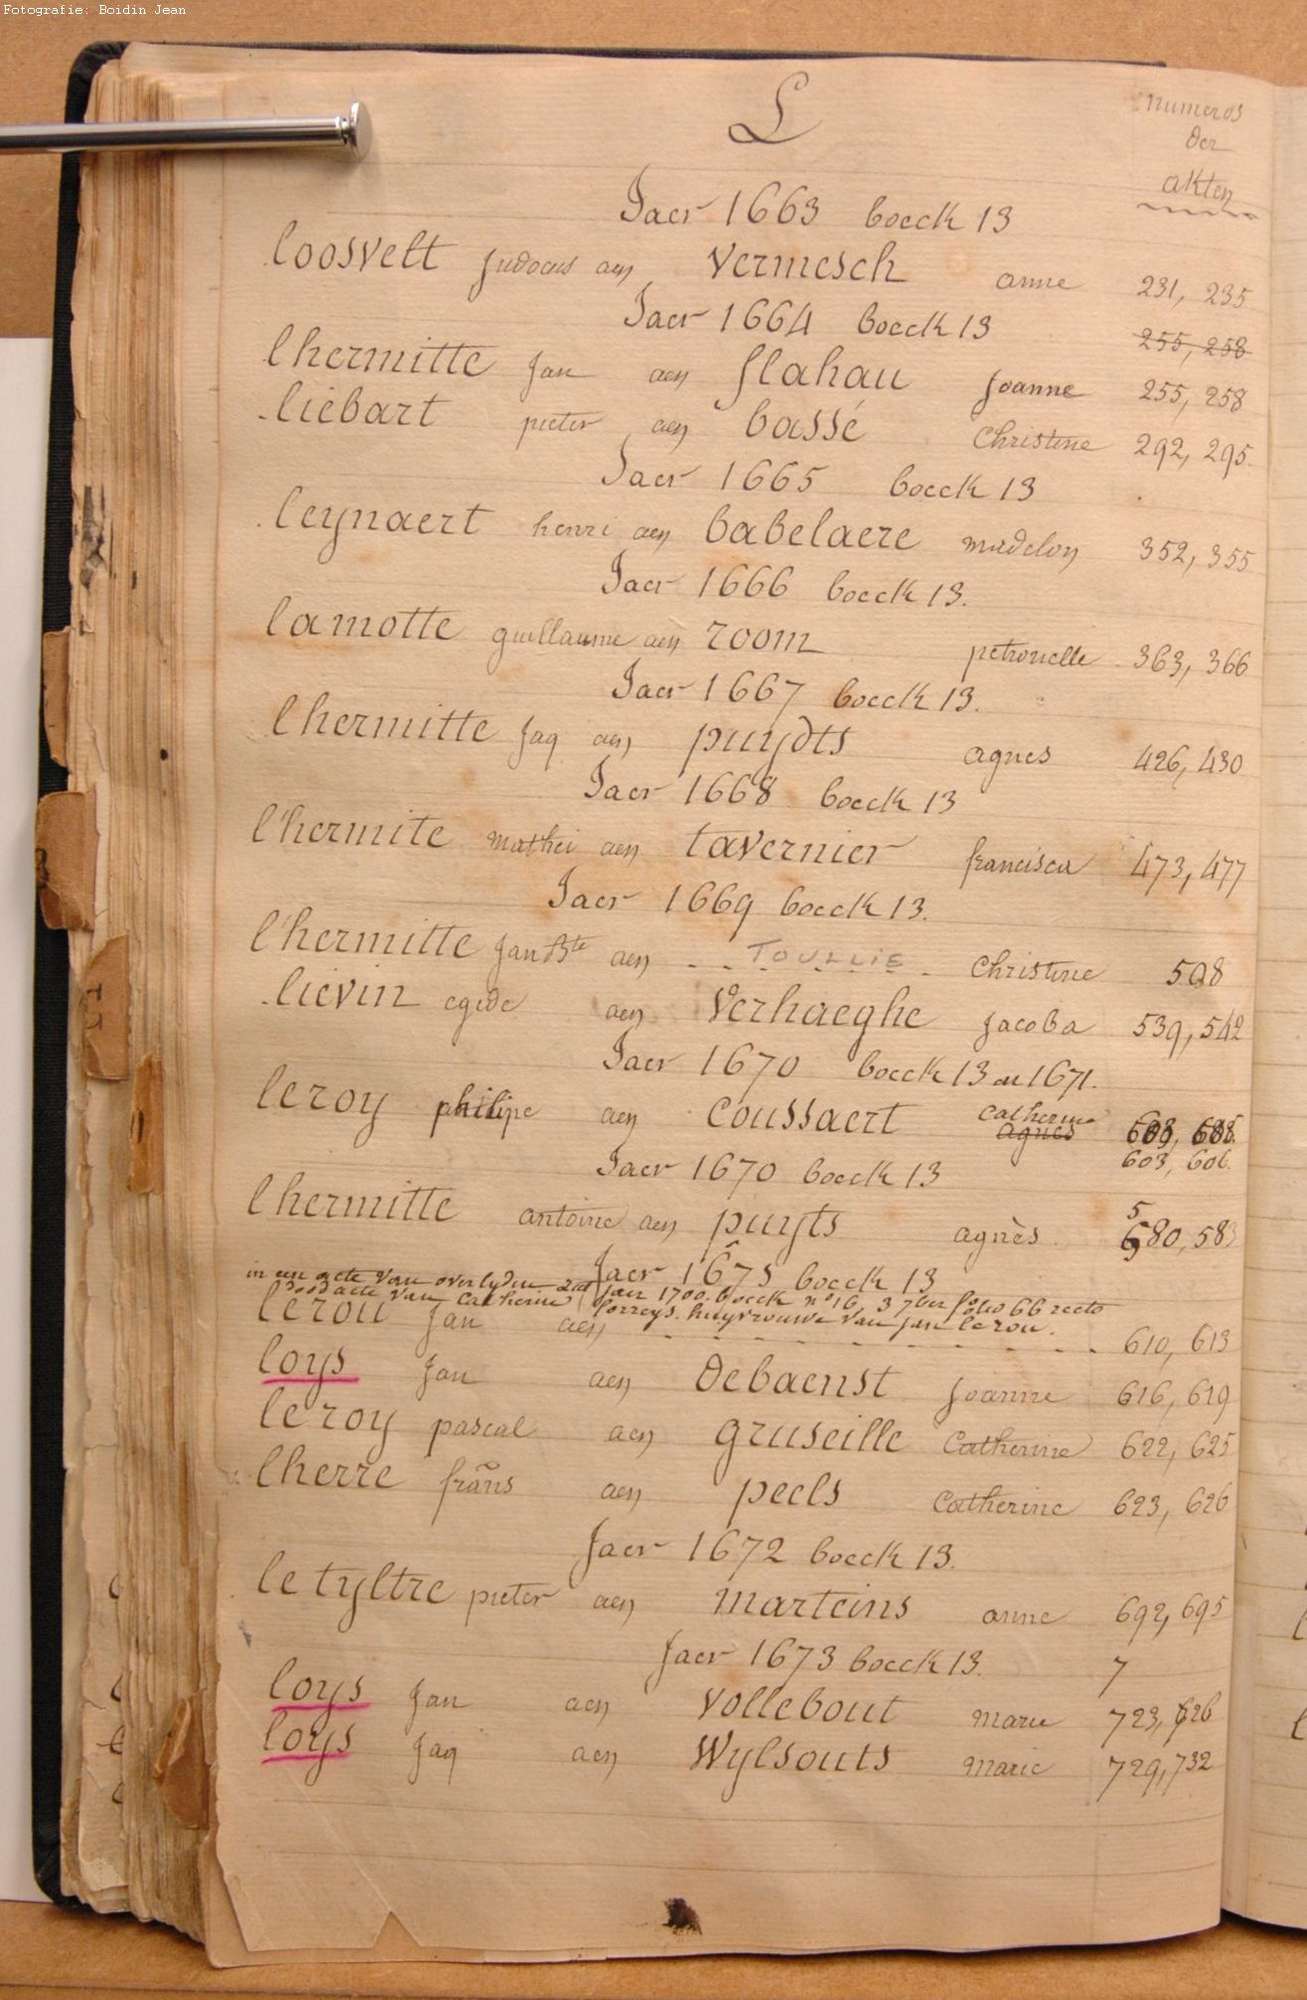 Fotografie: Boidin Jean
L
numeros
der
akten
Jaer 1663 boeck 13
loosvelt Judocus aen vermesch anne 231, 235
Jaer 1664 boeck 13 255, 258
lhermitte Jan aen flahau Joanne 255, 258
liebart pieter aen bassé Christine 292, 295
Jaer 1665 boeck 13
leynaert henri aen babelaere madelon 352, 355
Jaer 1666 boeck 13.
lamotte guillaume aen room petronelle 363, 366
Jaer 1667 boeck 13.
lhermitte Jaq aen puydts agnes 426, 430
Jaer 1668 boeck 13
l'hermite mathei aen tavernier francisca 473, 477
Jaer 1669 boeck 13.
l'hermitte Jan Bte aen TOULLIE Christine 508
lievin egide aen verhaeghe Jacoba 539, 542
Jaer 1670 boeck 13 en 1671.
leroy philipe aen coussaert catherine agnes
603, 606
Jaer 1670 boeck 13
lhermitte antoine aen puyts agnès 580, 583
Jaer 1675 boeck 13
in een acte van overlyden Jaer 1700. boeck n° 16, 3 7ber folio 66 recto
doodacte van Catherine huysvrouwe van Jan lerou.
lerou Jan aen 610, 613
loys Jan aen debaenst Joanne 616, 619
leroy pascal aen gruseille Catherine 622, 625
lherre frans aen peels Catherine 623, 626
Jaer 1672 boeck 13.
letyltre pieter aen marteins anne 692, 695
Jaer 1673 boeck 13. 7
loys Jan aen vollebout marie 723, 726
loys Jaq aen Wylsouts marie 729, 732